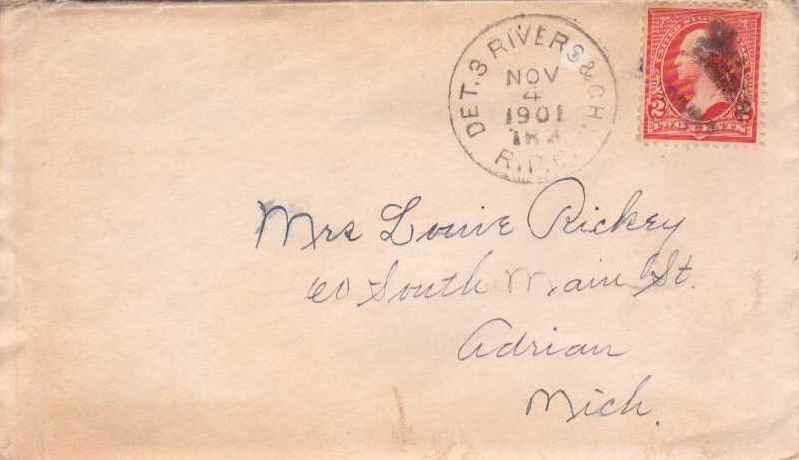 DET. 3 RIVERS & CH.
NOV
4
1901
R.P.O.
2
TWO CENTS
Mrs Louie Rickey
South Main St.
Adrian
Mich.